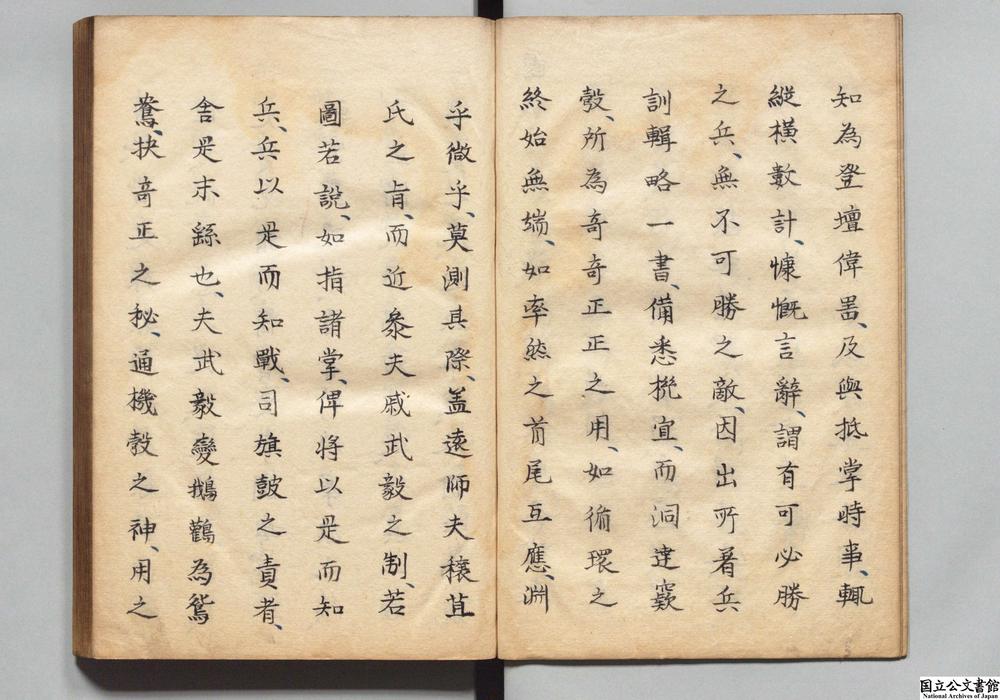 知為登壇偉噐、及與抵掌時事、輒
縱橫數計、慷慨言辭、謂有可必勝
之兵、無不可勝之敵、因出所著兵
訓輯略一書、備悉機宜、而洞達窾
彀、所為奇奇正正之用、如循環之
終始無端、如率然之首尾互應、淵
乎微乎、莫測其際、盖遠師夫穰苴
氏之肯、而近叅夫戚武毅之制、若
圖若說、如指諸掌、俾将以是而知
兵、兵以是而知戰、司旗鼓之責者、
舍是末繇也、夫武毅變鵝鸛為鴛
鴦、抉奇正之秘、通機彀之神、用之
国立公文書館
National Archives of Japan